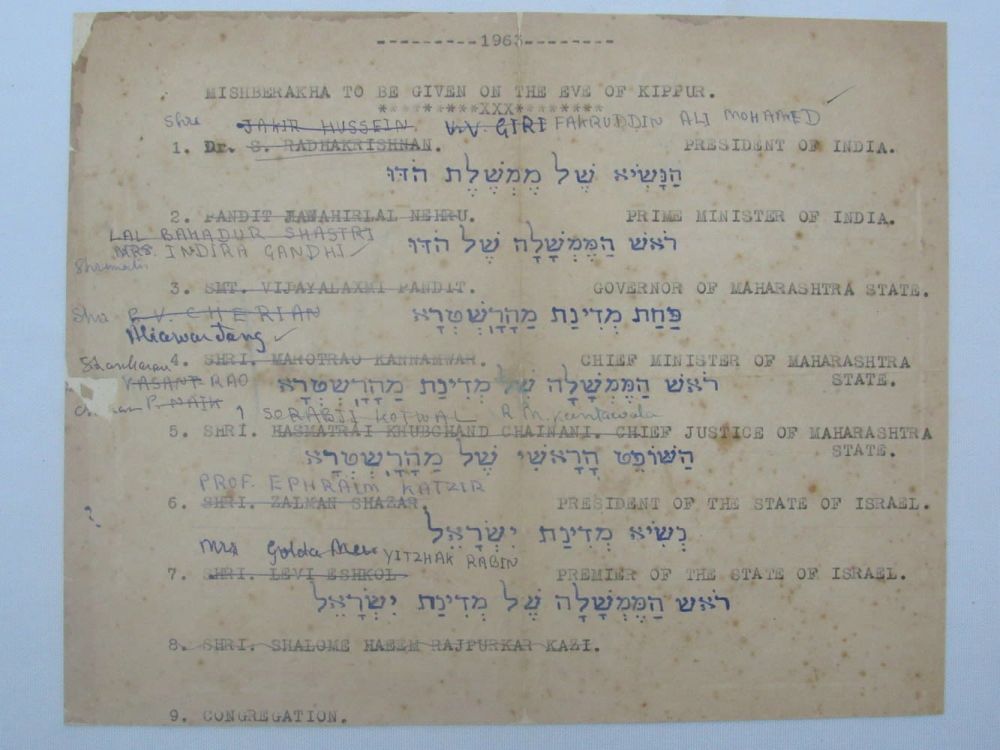 ---------1963--------
MISHBERAKHA TO BE GIVEN ON THE EVE OF KIPPUR.
*********XXX*********
Shri JAKIR HUSSEIN. V.V. GIRI FAKRUDDIN ALI MOHAMED
1. Dr. S. RADHAKRISHNAN. PRESIDENT OF INDIA.
הַנָּשִׂיא שֶׁל מֶמְשֶׁלֶת הֹדּוּ
2. PANDIT JAWAHIRLAL NEHRU. PRIME MINISTER OF INDIA.
LAL BAHADUR SHASTRI
רֹאשׁ הַמֶּמְשָׁלָה שֶׁל הֹדּוּ
MRS. INDIRA GANDHI
Shrimati
3. SMT. VIJAYALAXMI PANDIT. GOVERNOR OF MAHARASHTRA STATE.
Shri P.V. CHERIAN
פַּחַת מְדִינַת מַהָרָשְׁטְרָא
Aliawar Jang
4. SHRI. MAROTRAO KANNAMWAR. CHIEF MINISTER OF MAHARASHTRA
STATE.
Shankarrao
VASANT RAO
רֹאשׁ הַמֶּמְשָׁלָה שֶׁל מְדִינַת מַהָרָשְׁטְרָא
P. NAIK
SORABJI KOTWAL R.M. Kantawala
5. SHRI. HASMATRAI KHUBCHAND CHAINANI. CHIEF JUSTICE OF MAHARASHTRA
STATE.
הַשּׁוֹפֵט הָרָאשִׁי שֶׁל מַהָרָשְׁטְרָא
PROF. EPHRAIM KATZIR
6. SHRI. ZALMAN SHAZAR. PRESIDENT OF THE STATE OF ISRAEL.
?
נְשִׂיא מְדִינַת יִשְׂרָאֵל
Mrs Golda Meir YITZHAK RABIN
7. SHRI. LEVI ESHKOL. PREMIER OF THE STATE OF ISRAEL.
רֹאשׁ הַמֶּמְשָׁלָה שֶׁל מְדִינַת יִשְׂרָאֵל
8. SHRI. SHALOME HAEEM RAJPURKAR KAZI.
9. CONGREGATION.